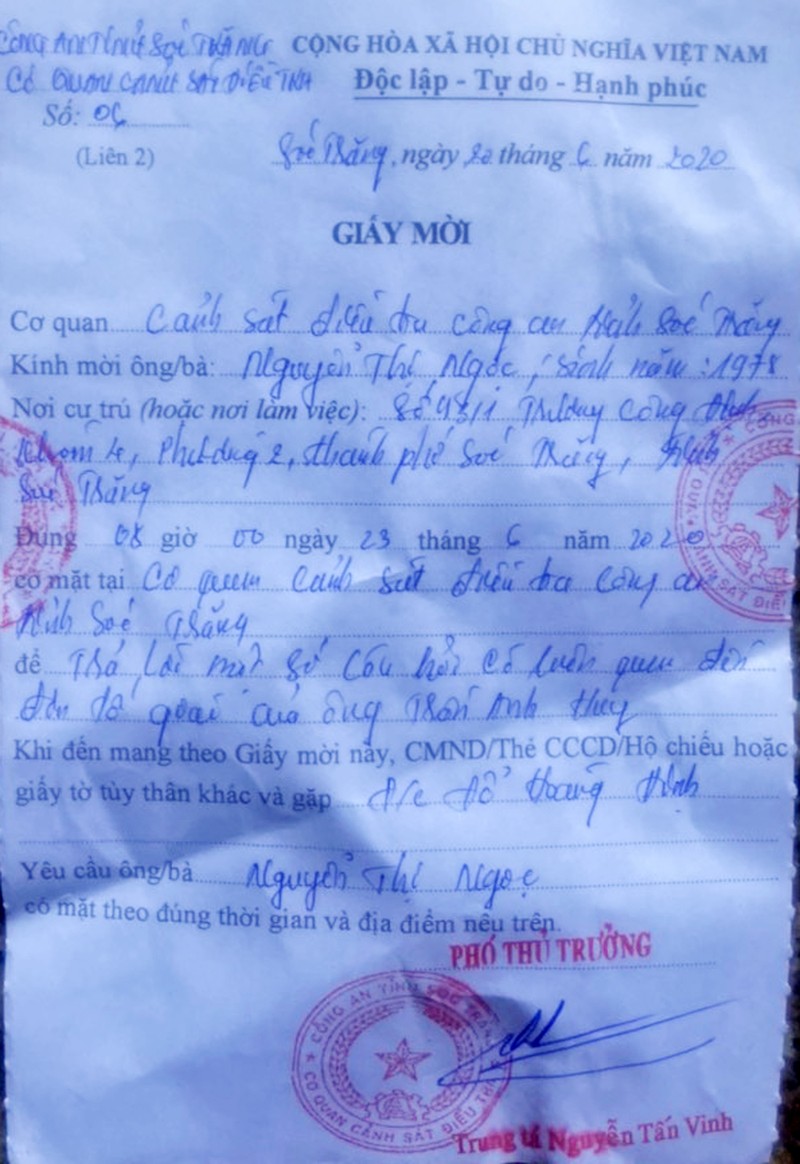 CÔNG AN TỈNH SÓC TRĂNG
CƠ QUAN CẢNH SÁT ĐIỀU TRA
CỘNG HÒA XÃ HỘI CHỦ NGHĨA VIỆT NAM
Độc lập - Tự do - Hạnh phúc
Số: 06
(Liên 2)
Sóc Trăng, ngày 20 tháng 6 năm 2020
GIẤY MỜI
Cơ quan Cảnh sát điều tra Công an tỉnh Sóc Trăng
Kính mời ông/bà: Nguyễn Thị Ngọc, sinh năm: 1978
Nơi cư trú (hoặc nơi làm việc): Số 98/1, Trương Công Định
Khóm 4, Phường 2, thành phố Sóc Trăng, tỉnh
Sóc Trăng
Đúng 08 giờ 00 ngày 23 tháng 6 năm 2020
có mặt tại Cơ quan Cảnh sát điều tra Công an
tỉnh Sóc Trăng
để Trả lời một số câu hỏi có liên quan đến
đơn tố giác của ông Trần Anh Huy
Khi đến mang theo Giấy mời này, CMND/Thẻ CCCD/Hộ chiếu hoặc
giấy tờ tùy thân khác và gặp đ/c Đỗ Hoàng Thịnh
Yêu cầu ông/bà Nguyễn Thị Ngọc
có mặt theo đúng thời gian và địa điểm nêu trên.
PHÓ THỦ TRƯỞNG
CÔNG AN TỈNH SÓC TRĂNG
CƠ QUAN CẢNH SÁT ĐIỀU TRA
Trung tá Nguyễn Tấn Vinh